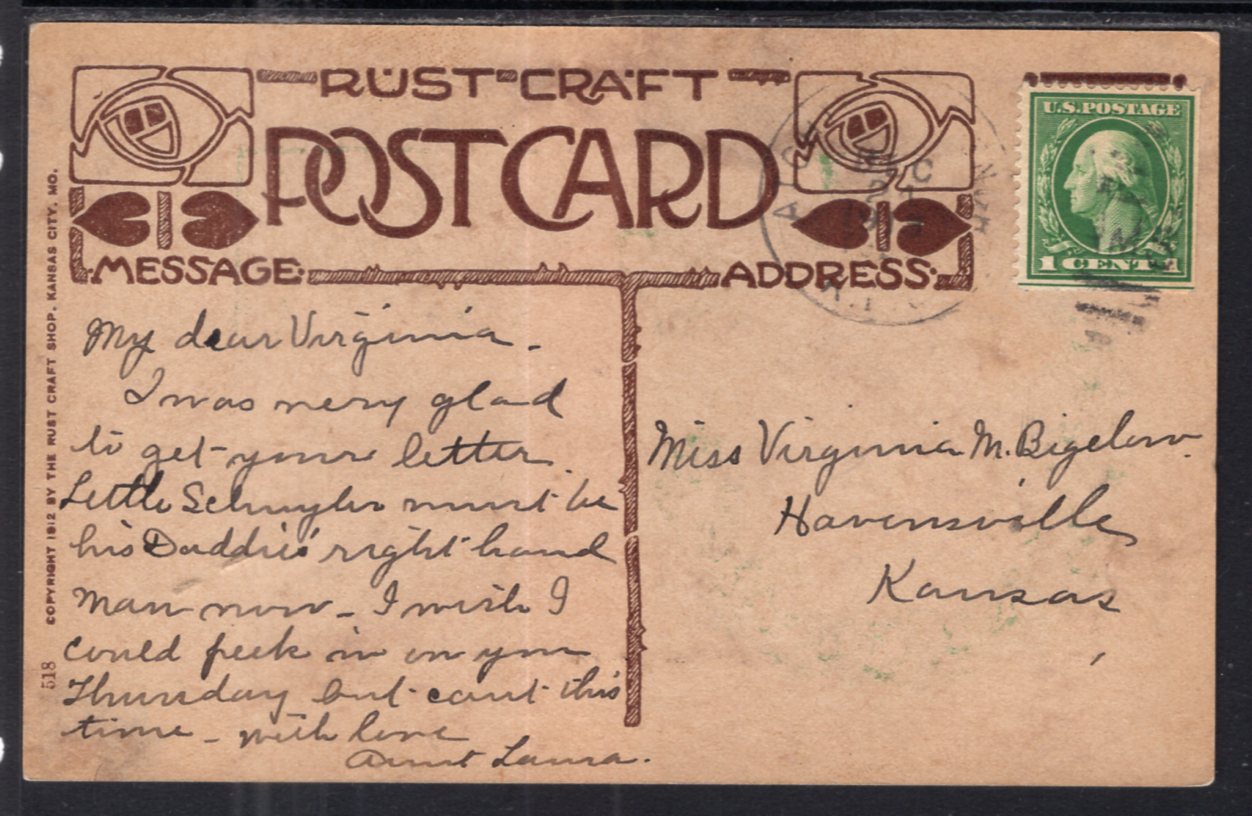 RUST CRAFT
POSTCARD
MESSAGE
ADDRESS
U.S. POSTAGE
1 CENT 1
DEC
My dear Virginia -
I was very glad
to get your letter.
Little Schuyler must be
his Daddie's right hand
man now - I wish I
could peek in on you
Thursday but can't this
time - with love
Aunt Laura.
Miss Virginia M. Bigelow
Havensville,
Kansas
COPYRIGHT 1912 BY THE RUST CRAFT SHOP, KANSAS CITY, MO.
518